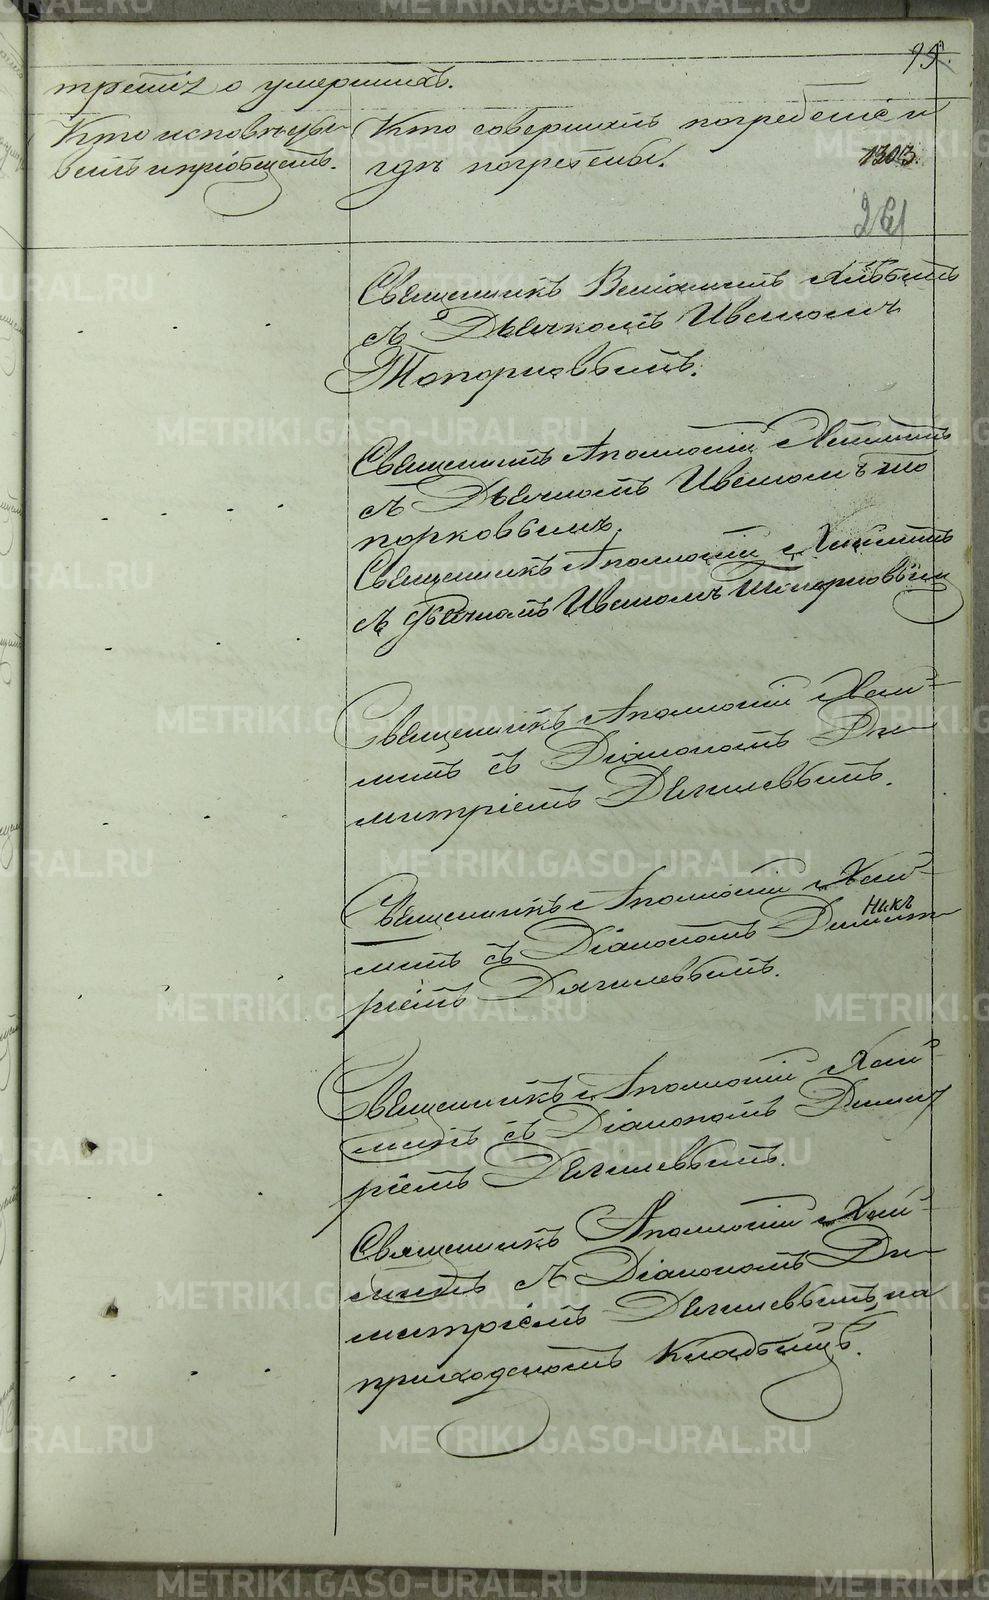 95.
третія о умершихъ.
Кто исповѣды-
валъ и пріобщалъ.
Кто совершалъ погребеніе и
гдѣ погребены.
1303.
261
Священникъ Веніаминъ
съ Дьячкомъ Иваномъ
Топорковымъ.
Священникъ Аполлоній
съ Дьячкомъ Иваномъ То
порковымъ.
Священникъ Аполлоній
съ Дьячкомъ Иваномъ Топорковымъ
Священникъ Аполлоній
съ Діакономъ Ди-
митріемъ Дягилевымъ.
Священникъ Аполлоній
никъ
съ Діакономъ Димит
ріемъ Дягилевымъ.
Священникъ Аполлоній
съ Діакономъ Димит
ріемъ Дягилевымъ.
Священникъ Аполлоній
съ Діакономъ Ди-
митріемъ Дягилевымъ, на
приходскомъ кладбищѣ.
METRIKI.GASO-URAL.RU